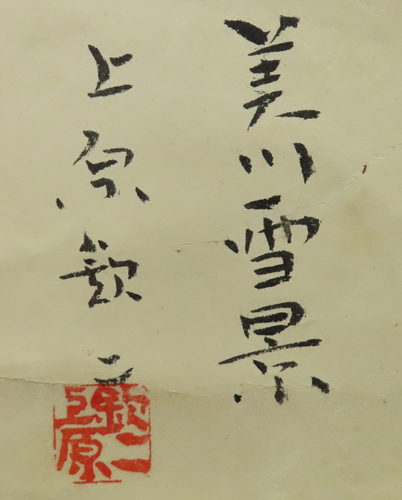 美川雪景
上原欽二
欽二
上原